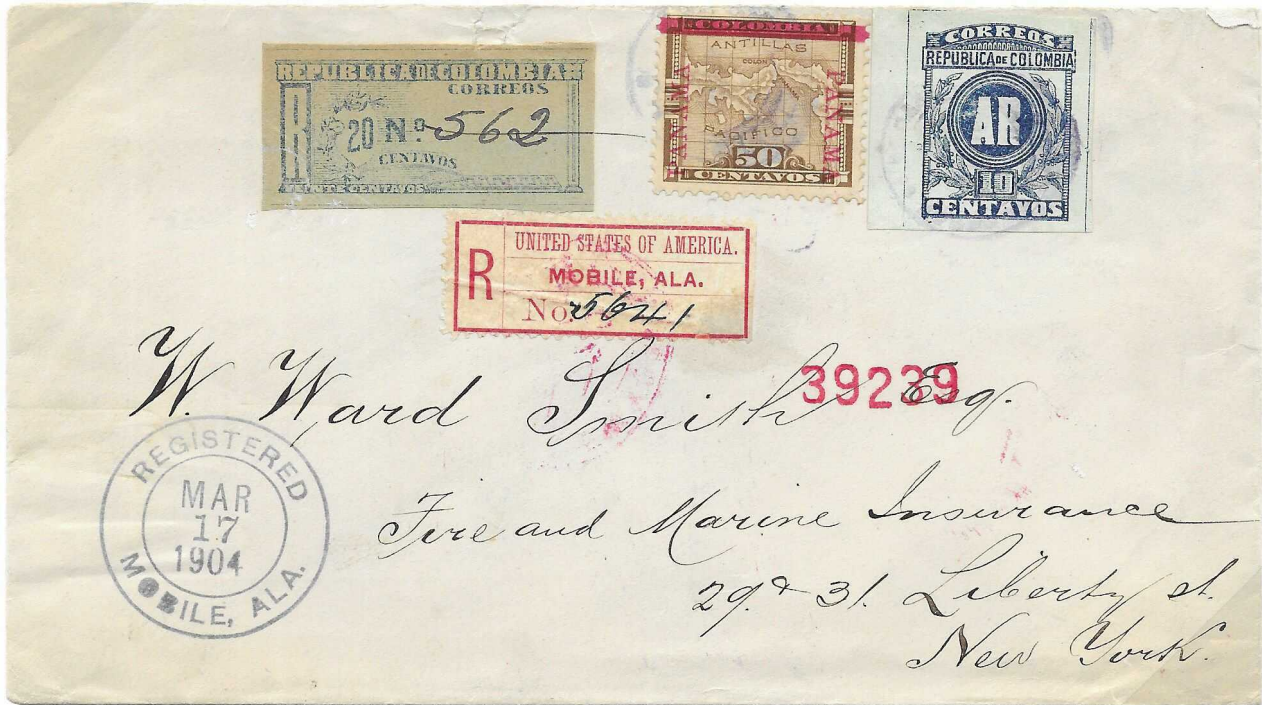 REPUBLICA DE COLOMBIA
CORREOS
R
20 Nº 562
CENTAVOS
VEINTE CENTAVOS
COLOMBIA
ANTILLAS
COLON
PANAMA
PANAMA
PACIFICO
50
CENTAVOS
CORREOS
REPUBLICA DE COLOMBIA
AR
10
CENTAVOS
R
UNITED STATES OF AMERICA.
MOBILE, ALA.
No. 5641
W. Ward Smith Esq.
39239
Fire and Marine Insurance
29 & 31. Liberty st.
New York.
REGISTERED
MAR
17
1904
MOBILE, ALA.